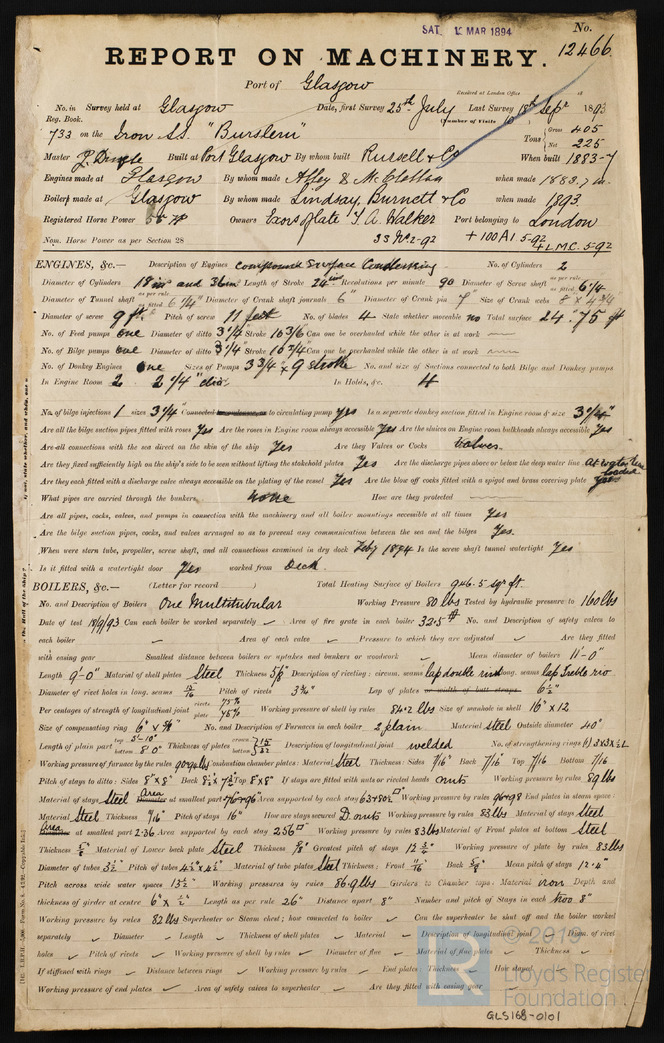 SAT. MAR 1894
No.
REPORT ON MACHINERY. 12466
Port of Glasgow
Received at London Office
No. in Survey held at Glasgow Date, first Survey 25th July Last Survey 18th Sept 1893
Reg. Book. (Number of Visits
733 on the Iron SS. "Burslem" Tons Gross 405 Net 225
Master Built at Port Glasgow By whom built Russell & Co When built 1883-7
Engines made at Glasgow By whom made when made 1883.7
Boilers made at Glasgow By whom made Lindsay, Burnett & Co when made 1893
Registered Horse Power Owners Exors of late T. A. Walker Port belonging to London
Nom. Horse Power as per Section 28 +100A1 5-92
+L.M.C. 5-92
ENGINES, &c.— Description of Engines Compound Surface Condensing No. of Cylinders 2
Diameter of Cylinders 18 ins and 36 ins Length of Stroke 24 ins Revolutions per minute 90 Diameter of Screw shaft as per rule as fitted 6 1/4
Diameter of Tunnel shaft as per rule as fitted 6 1/4" Diameter of Crank shaft journals 6" Diameter of Crank pin 7" Size of Crank webs
Diameter of screw 9 ft Pitch of screw 11 feet No. of blades 4 State whether moveable no Total surface 24.75 ft
No. of Feed pumps one Diameter of ditto 3 1/4" Stroke Can one be overhauled while the other is at work
No. of Bilge pumps one Diameter of ditto 3 1/4" Stroke Can one be overhauled while the other is at work
No. of Donkey Engines One Sizes of Pumps 3 3/4" x 9 stroke No. and size of Suctions connected to both Bilge and Donkey pumps
In Engine Room 2 2 1/4" dia. In Holds, &c. 4
No. of bilge injections 1 sizes 3 1/4" Connected to circulating pump Yes Is a separate donkey suction fitted in Engine room & size
Are all the bilge suction pipes fitted with roses Yes Are the roses in Engine room always accessible Yes Are the sluices on Engine room bulkheads always accessible Yes
Are all connections with the sea direct on the skin of the ship Yes Are they Valves or Cocks Valves
Are they fixed sufficiently high on the ship's side to be seen without lifting the stokehold plates Yes Are the discharge pipes above or below the deep water line At water line loaded
Are they each fitted with a discharge valve always accessible on the plating of the vessel Yes Are the blow off cocks fitted with a spigot and brass covering plate Yes
What pipes are carried through the bunkers none How are they protected
Are all pipes, cocks, valves, and pumps in connection with the machinery and all boiler mountings accessible at all times Yes
Are the bilge suction pipes, cocks, and valves arranged so as to prevent any communication between the sea and the bilges Yes.
When were stern tube, propeller, screw shaft, and all connections examined in dry dock Feby 1894 Is the screw shaft tunnel watertight Yes
Is it fitted with a watertight door Yes worked from Deck.
BOILERS, &c.— (Letter for record) Total Heating Surface of Boilers 946.5 sq ft.
No. and Description of Boilers One Multitubular Working Pressure 80 lbs Tested by hydraulic pressure to 160 lbs
Date of test 18/9/93 Can each boiler be worked separately Area of fire grate in each boiler 32.5 No. and Description of safety valves to
each boiler Area of each valve Pressure to which they are adjusted Are they fitted
with easing gear Smallest distance between boilers or uptakes and bunkers or woodwork Mean diameter of boilers 11'-0"
Length 9'-0" Material of shell plates Steel Thickness 5/8 Description of riveting: circum. seams lap double riv long. seams lap Treble riv
Diameter of rivet holes in long. seams Pitch of rivets 3 3/4" Lap of plates or width of butt straps 6 1/2"
Per centages of strength of longitudinal joint rivets plate Working pressure of shell by rules 84.2 lbs Size of manhole in shell 16" x 12
Size of compensating ring No. and Description of Furnaces in each boiler 2 plain Material Steel Outside diameter 40"
Length of plain part top bottom Thickness of plates crown bottom Description of longitudinal joint welded No. of strengthening rings
Working pressure of furnace by the rules Combustion chamber plates: Material Steel Thickness: Sides 7/16" Back 7/16 Top 7/16 Bottom 7/16
Pitch of stays to ditto: Sides 8" x 8" Back Top 8" x 8" If stays are fitted with nuts or riveted heads nuts Working pressure by rules 89 lbs
Material of stays Steel Area at smallest part Area supported by each stay Working pressure by rules End plates in steam space:
Material Steel Thickness Pitch of stays 16" How are stays secured D. nuts Working pressure by rules 83 lbs Material of stays Steel
Area at smallest part 2.36 Area supported by each stay 256 Working pressure by rules 83 lbs Material of Front plates at bottom Steel
Thickness 5/8 Material of Lower back plate Steel Thickness Greatest pitch of stays Working pressure of plate by rules 83 lbs
Diameter of tubes 3 1/2" Pitch of tubes Material of tube plates Steel Thickness: Front Back Mean pitch of stays
Pitch across wide water spaces 13 1/2" Working pressures by rules 86.9 lbs Girders to Chamber tops: Material iron Depth and
thickness of girder at centre Length as per rule 26" Distance apart 8" Number and pitch of Stays in each two 8"
Working pressure by rules 82 lbs Superheater or Steam chest; how connected to boiler Can the superheater be shut off and the boiler worked
separately Diameter Length Thickness of shell plates Material Description of longitudinal joint Diam. of rivet
holes Pitch of rivets Working pressure of shell by rules Diameter of flue Material of flue plates Thickness
If stiffened with rings Distance between rings Working pressure by rules End plates: Thickness How stayed
Working pressure of end plates Area of safety valves to superheater Are they fitted with easing gear
© 2019
Lloyd's Register
Foundation
GLS168-0101